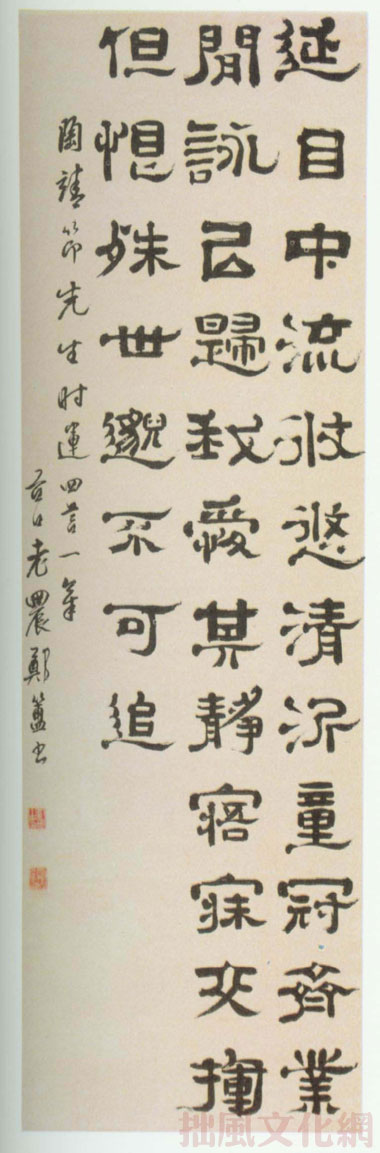 延目中流攸悠清沂童冠齊業
閒詠以歸我愛其靜寤寐交揮
但恨殊世邈不可追
陶靖節先生时運四言一章
谷口老農鄭簠书
拙風文化網